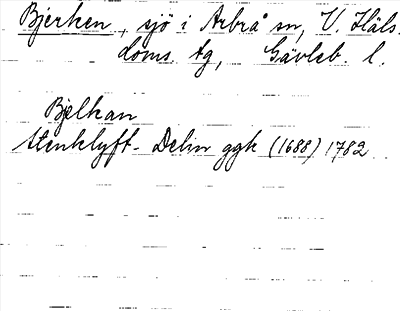 Bjerken, sjö i Arbrå sn, V. Häls.
doms. tg, Gävleb. l.
Bjelkan
Stenklyft- Delin ggk (1688) 1782